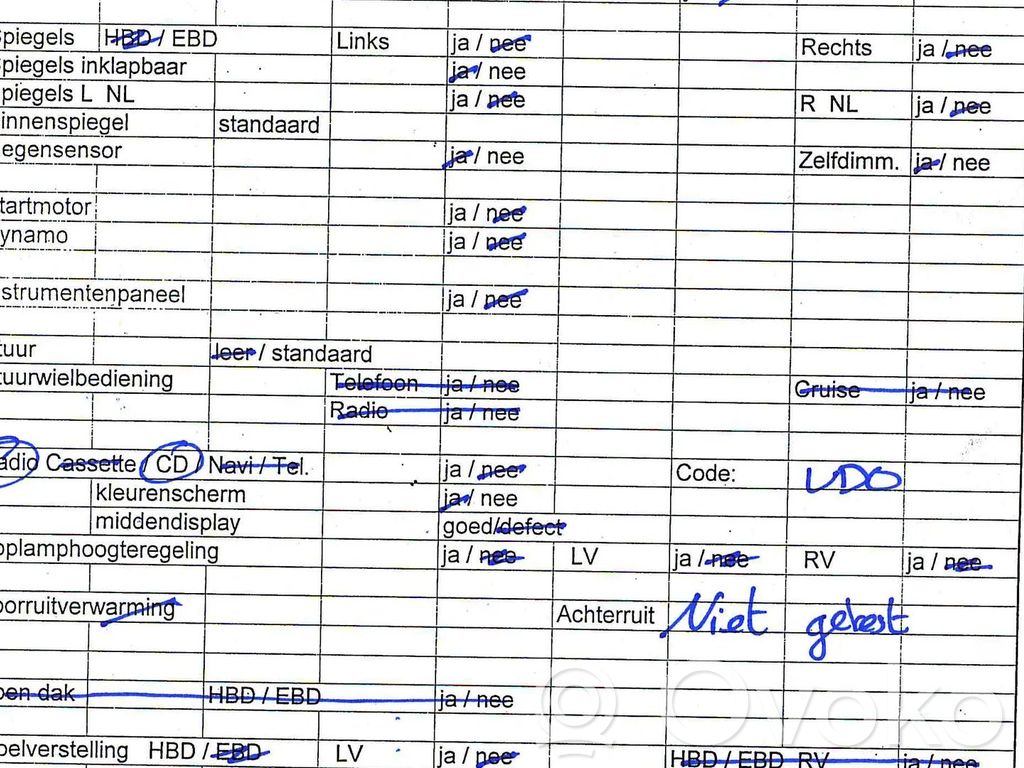 piegels HBD / EBD Links ja / nee Rechts ja / nee
piegels inklapbaar ja / nee
piegels L NL ja / nee R NL ja / nee
innenspiegel standaard
egensensor ja / nee Zelfdimm. ja / nee
tartmotor ja / nee
ynamo ja / nee
strumentenpaneel ja / nee
tuur leer / standaard
tuurwielbediening Telefoon ja / nee Cruise ja / nee
Radio ja / nee
adio Cassette / CD Navi / Tel. ja / nee Code: UDO
kleurenscherm ja / nee
middendisplay goed/defect
oplamphoogteregeling ja / nee LV ja / nee RV ja / nee
oorruitverwarming Achterruit Niet getest
pen dak HBD / EBD ja / nee
oelverstelling HBD / EBD LV ja / nee HBD / EBD RV ja / nee
Ovoko